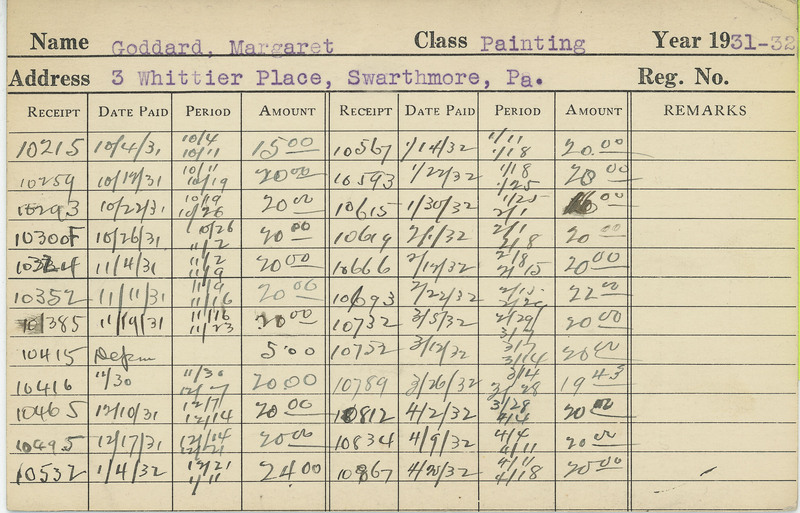 Name Goddard, Margaret Class Painting Year 1931-32
Address 3 Whittier Place, Swarthmore, Pa. Reg. No.
RECEIPT DATE PAID PERIOD AMOUNT RECEIPT DATE PAID PERIOD AMOUNT REMARKS
10215 10/4/31 10/4 10/11 15 00 10567 1/14/32 1/11 1/18 20 00
10259 10/17/31 10/11 10/19 20 00 10593 1/22/32 1/18 1/25 20 00
10293 10/22/31 10/19 10/26 20 00 10615 1/30/32 1/25 2/1 00
10300F 10/26/31 10/26 11/2 20 00 10619 2/1/32 2/1 2/8 20 00
11/4/31 11/2 11/9 20 00 10666 2/12/32 2/8 2/15 20 00
10352 11/11/31 11/9 11/16 20 00 10693 2/22/32 2/15 2/22 22 00
10385 11/19/31 11/16 11/23 20 00 10732 3/5/32 2/29 3/7 20 00
10415 5 00 10752 3/12/32 3/7 3/14 20 00
10416 11/30 11/30 12/7 20 00 10789 3/26/32 3/28 19 43
10465 12/10/31 12/7 12/14 20 00 10812 4/2/32 3/28 4/4 20 00
10495 12/17/31 12/14 12/21 20 00 10834 4/9/32 4/4 4/11 20 00
10532 1/4/32 12/21 1/11 24 00 10867 4/20/32 4/11 4/18 20 00